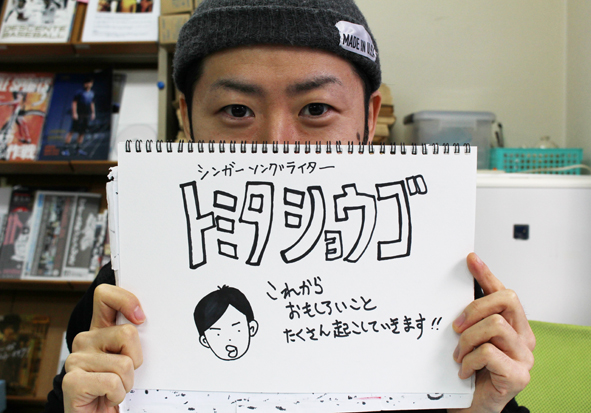 DESCENTE
BASEBALL
MADE IN U.S.A
シンガーソングライター
トミタショウゴ
これから
おもしろいこと
たくさん起こしていきます!!